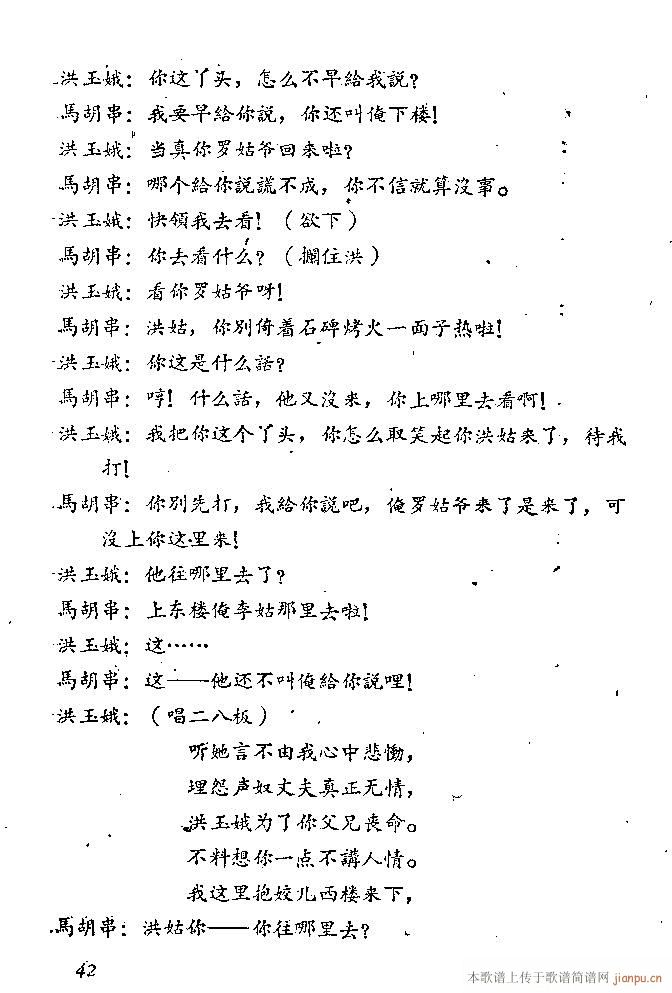 洪玉娥：你这丫头，怎么不早給我説？
馬胡串：我要早給你説，你还叫俺下楼！
洪玉娥：当真你罗姑爷回来啦？
馬胡串：哪个給你説謊不成，你不信就算沒事。
洪玉娥：快領我去看！（欲下）
馬胡串：你去看什么？（攔住洪）
洪玉娥：看你罗姑爷呀！
馬胡串：洪姑，你別倚着石碑烤火一面子热啦！
洪玉娥：你这是什么話？
馬胡串：哼！什么話，他又沒来，你上哪里去看啊！
洪玉娥：我把你这个丫头，你怎么取笑起你洪姑来了，待我
打！
馬胡串：你別先打，我給你説吧，俺罗姑爷来了是来了，可
沒上你这里来！
洪玉娥：他往哪里去了？
馬胡串：上东楼俺李姑那里去啦！
洪玉娥：这……
馬胡串：这——他还不叫俺給你説哩！
洪玉娥：（唱二八板）
听她言不由我心中悲慟，
埋怨声奴丈夫真正无情，
洪玉娥为了你父兄丧命。
不料想你一点不講人情。
我这里抱姣儿西楼来下，
馬胡串：洪姑你——你往哪里去？
42
本歌谱上传于歌谱简谱网
jianpu.cn